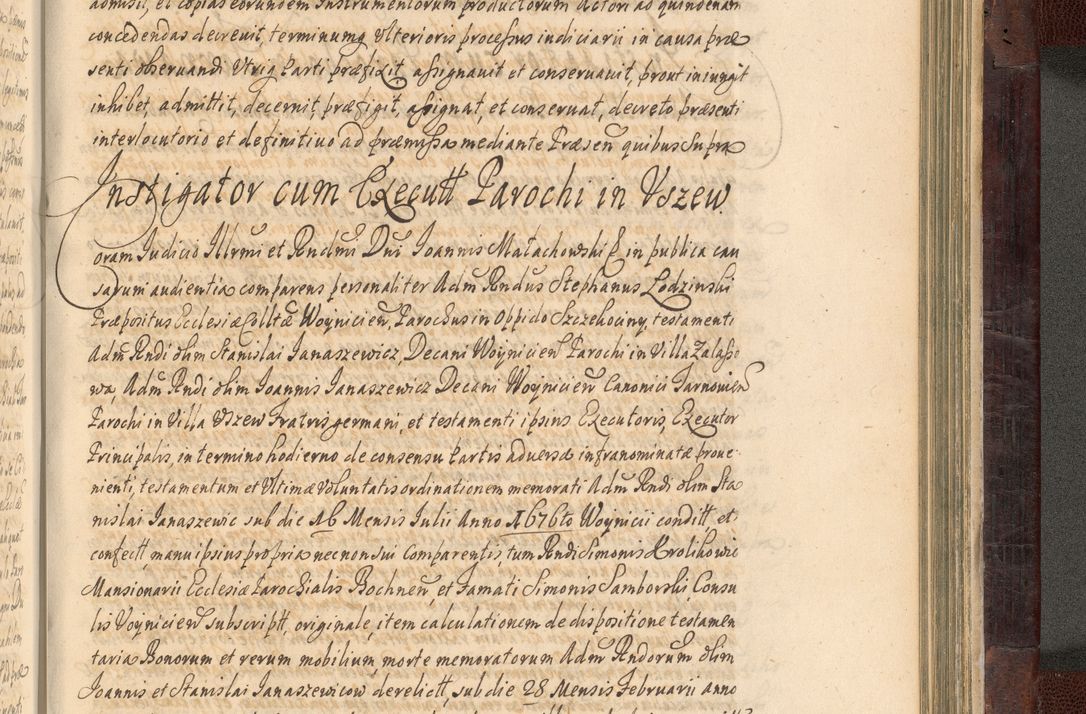 admisit, et copias eorundem Instrumentorum productorum Actori ad quindenam
concedendas decreuit, terminumq ulterioris processus iudiciarii in causa præ
senti obseruandi Utriq Parti præfixit, assignauit et conseruauit, prout iniungit
inhibet, admittit, decernit, præfigit, assignat, et conseruat, decreto præsenti
interlocutorio et definitiuo ad præmissa mediante Præsen quibus Supra
Instigator cum Executt Parochi in Uszew.
Coram Judicio Illrmi et Rndmi Dni Joannis Małachowski E in publica cau
sarum audientia comparens personaliter Adm Rndus Stephanus Lodzinski
Præpositus Ecclesiæ Colltæ Woynicien, Parochus in Oppido Szczekociny, testamenti
Adm Rndi olim Stanislai Janaszewicz, Decani Woynicien Parochi in Villa Zalasso
wa, Adm Rndi olim Joannis Janaszewicz Decani Woynicien Canonici Tarnouien
Parochi in Villa Uszew Fratris germani, et testamenti ipsius Executoris, Executor
Principalis, in termino hodierno de consensu Partis aduersæ infranominatæ proue-
nienti, testamentum et Ultimæ Voluntatis ordinationem memorati Adm Rndi olim Sta
nislai Janaszewic sub die 16 Mensis Julii Anno 1676to Woynicii conditt et
confectt, manu ipsius propria necnon sui Comparentis, tum Rndi Simonis Krolikowic
Mansionarii Ecclesiæ Parochialis Bochnen, et Famati Simonis Samborski Consu
lis Voynicien subscriptt, originale, item calculationem de dispositione testamen
taria Bonorum et rerum mobilium, morte memoratorum Adm Rndorum olim
Joannis et Stanislai Janaszewicow derelictt, sub die 28 Mensis Februarii anno